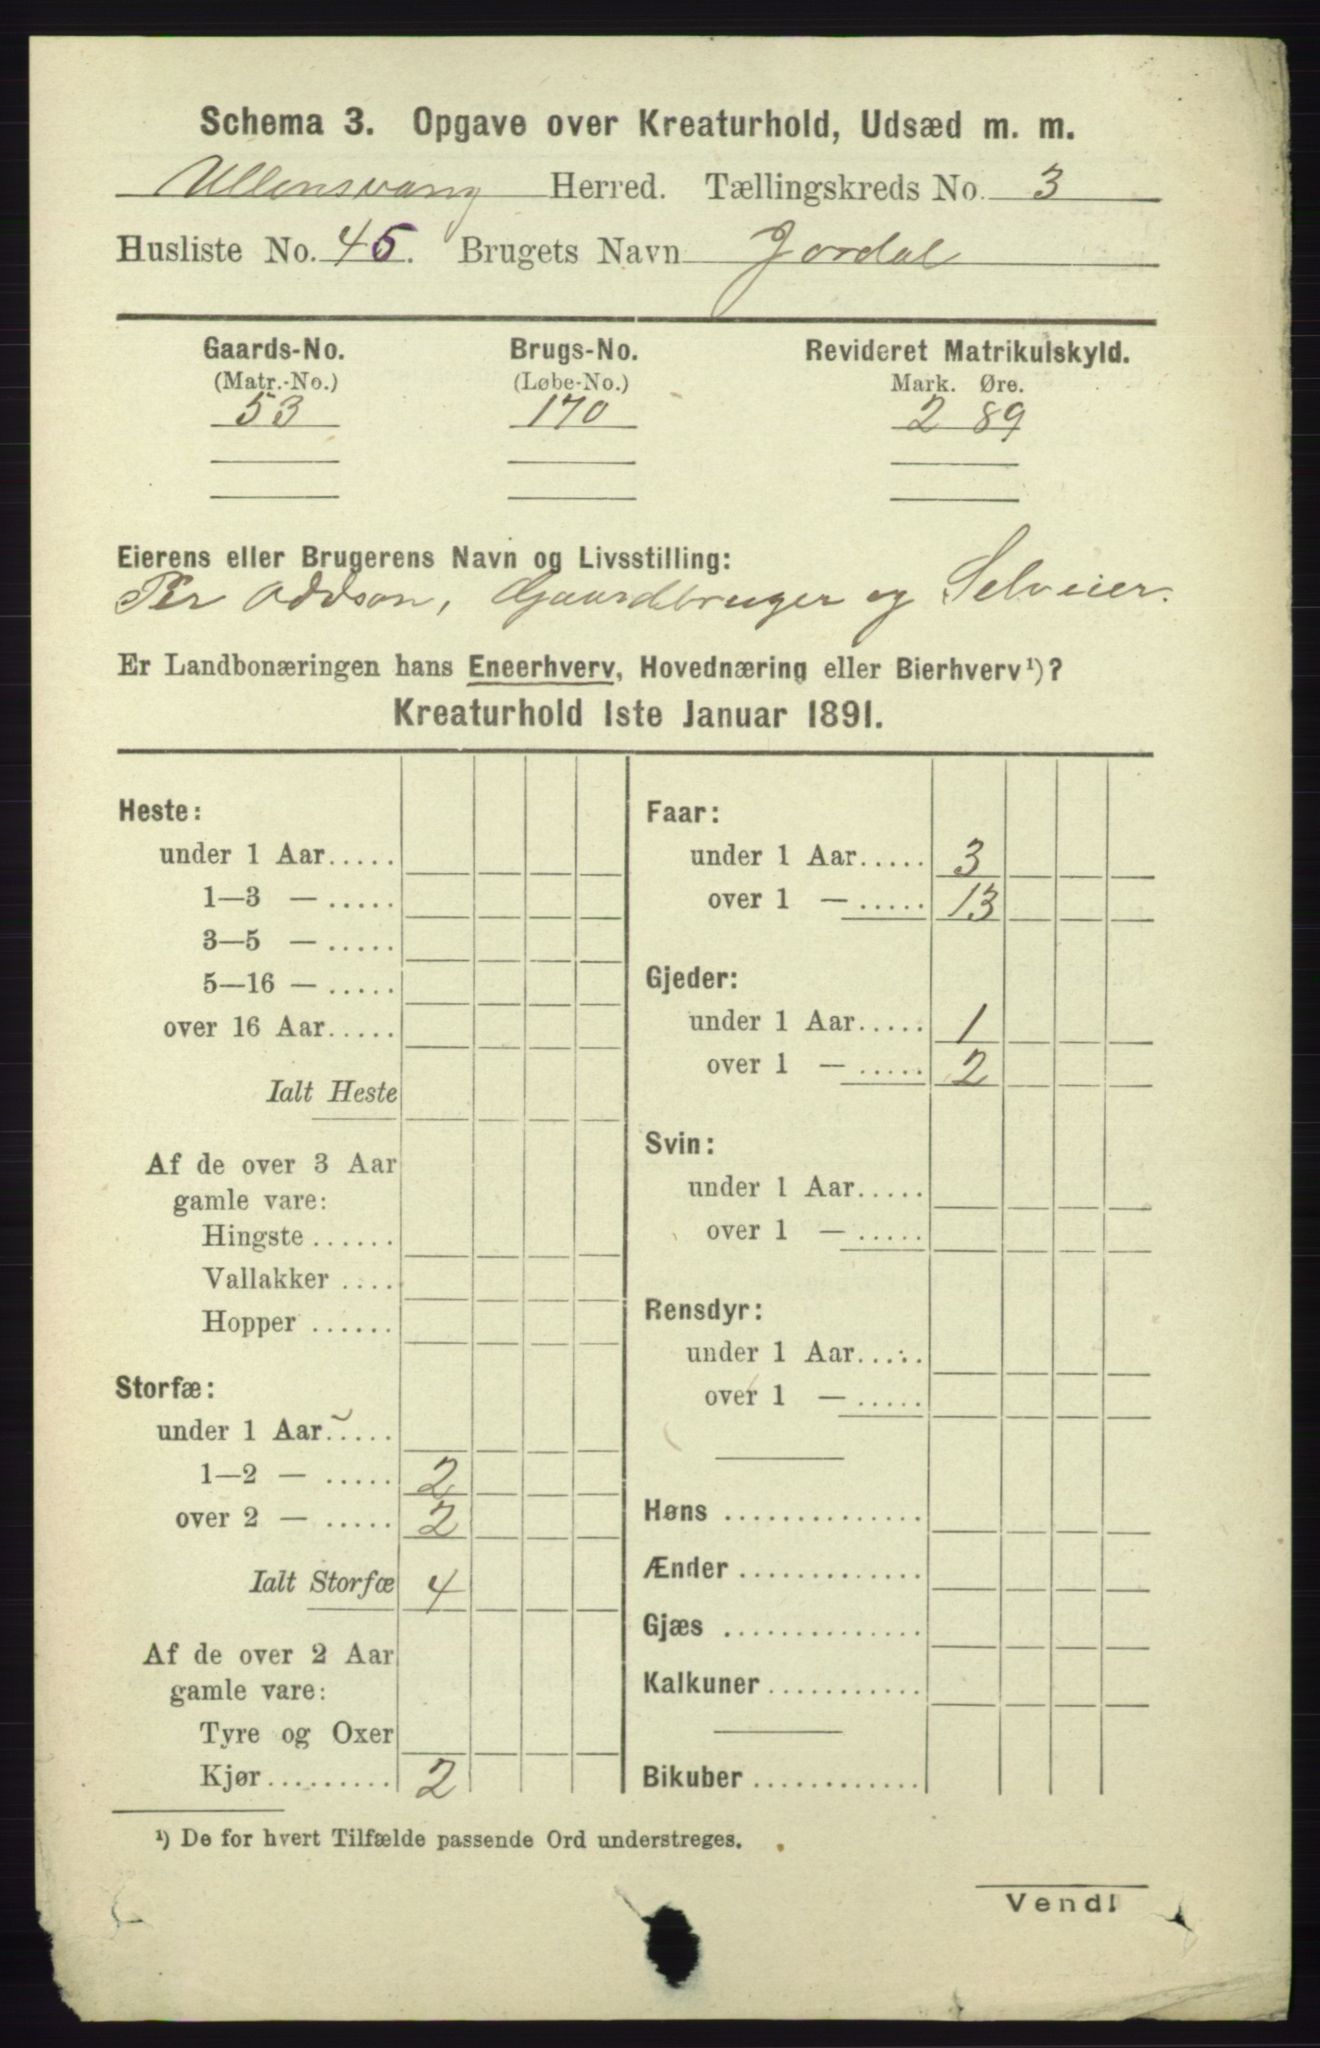 Schema 3. Opgave over Kreaturhold, Udsæd m. m.
Ullensvang Herred. Tællingskreds No. 3
Husliste No. 45. Brugets Navn Jordal
Gaards-No. Brugs-No. Revideret Matrikulskyld.
(Matr.-No.) (Løbe-No.) Mark. Øre.
53 170 2 89
Eierens eller Brugerens Navn og Livsstilling:
Per Oddson, Gaardbruger og Selveier.
Er Landbonæringen hans Eneerhverv, Hovednæring eller Bierhverv ¹)?
Kreaturhold 1ste Januar 1891.
Heste:
under 1 Aar.....
1—3 — .....
3—5 — .....
5—16 — .....
over 16 Aar.....
Ialt Heste
Af de over 3 Aar
gamle vare:
Hingste ......
Vallakker ....
Hopper ......
Storfæ:
under 1 Aar.....
1—2 — ..... 2
over 2 — ..... 2
Ialt Storfæ 4
Af de over 2 Aar
gamle vare:
Tyre og Oxer
Kjør......... 2
Faar:
under 1 Aar..... 3
over 1 — ..... 13
Gjeder:
under 1 Aar..... 1
over 1 — ..... 2
Svin:
under 1 Aar.....
over 1 — .....
Rensdyr:
under 1 Aar.....
over 1 — .....
Høns ..............
Ænder .............
Gjæs ..............
Kalkuner ...........
Bikuber ............
¹) De for hvert Tilfælde passende Ord understreges.
Vend!